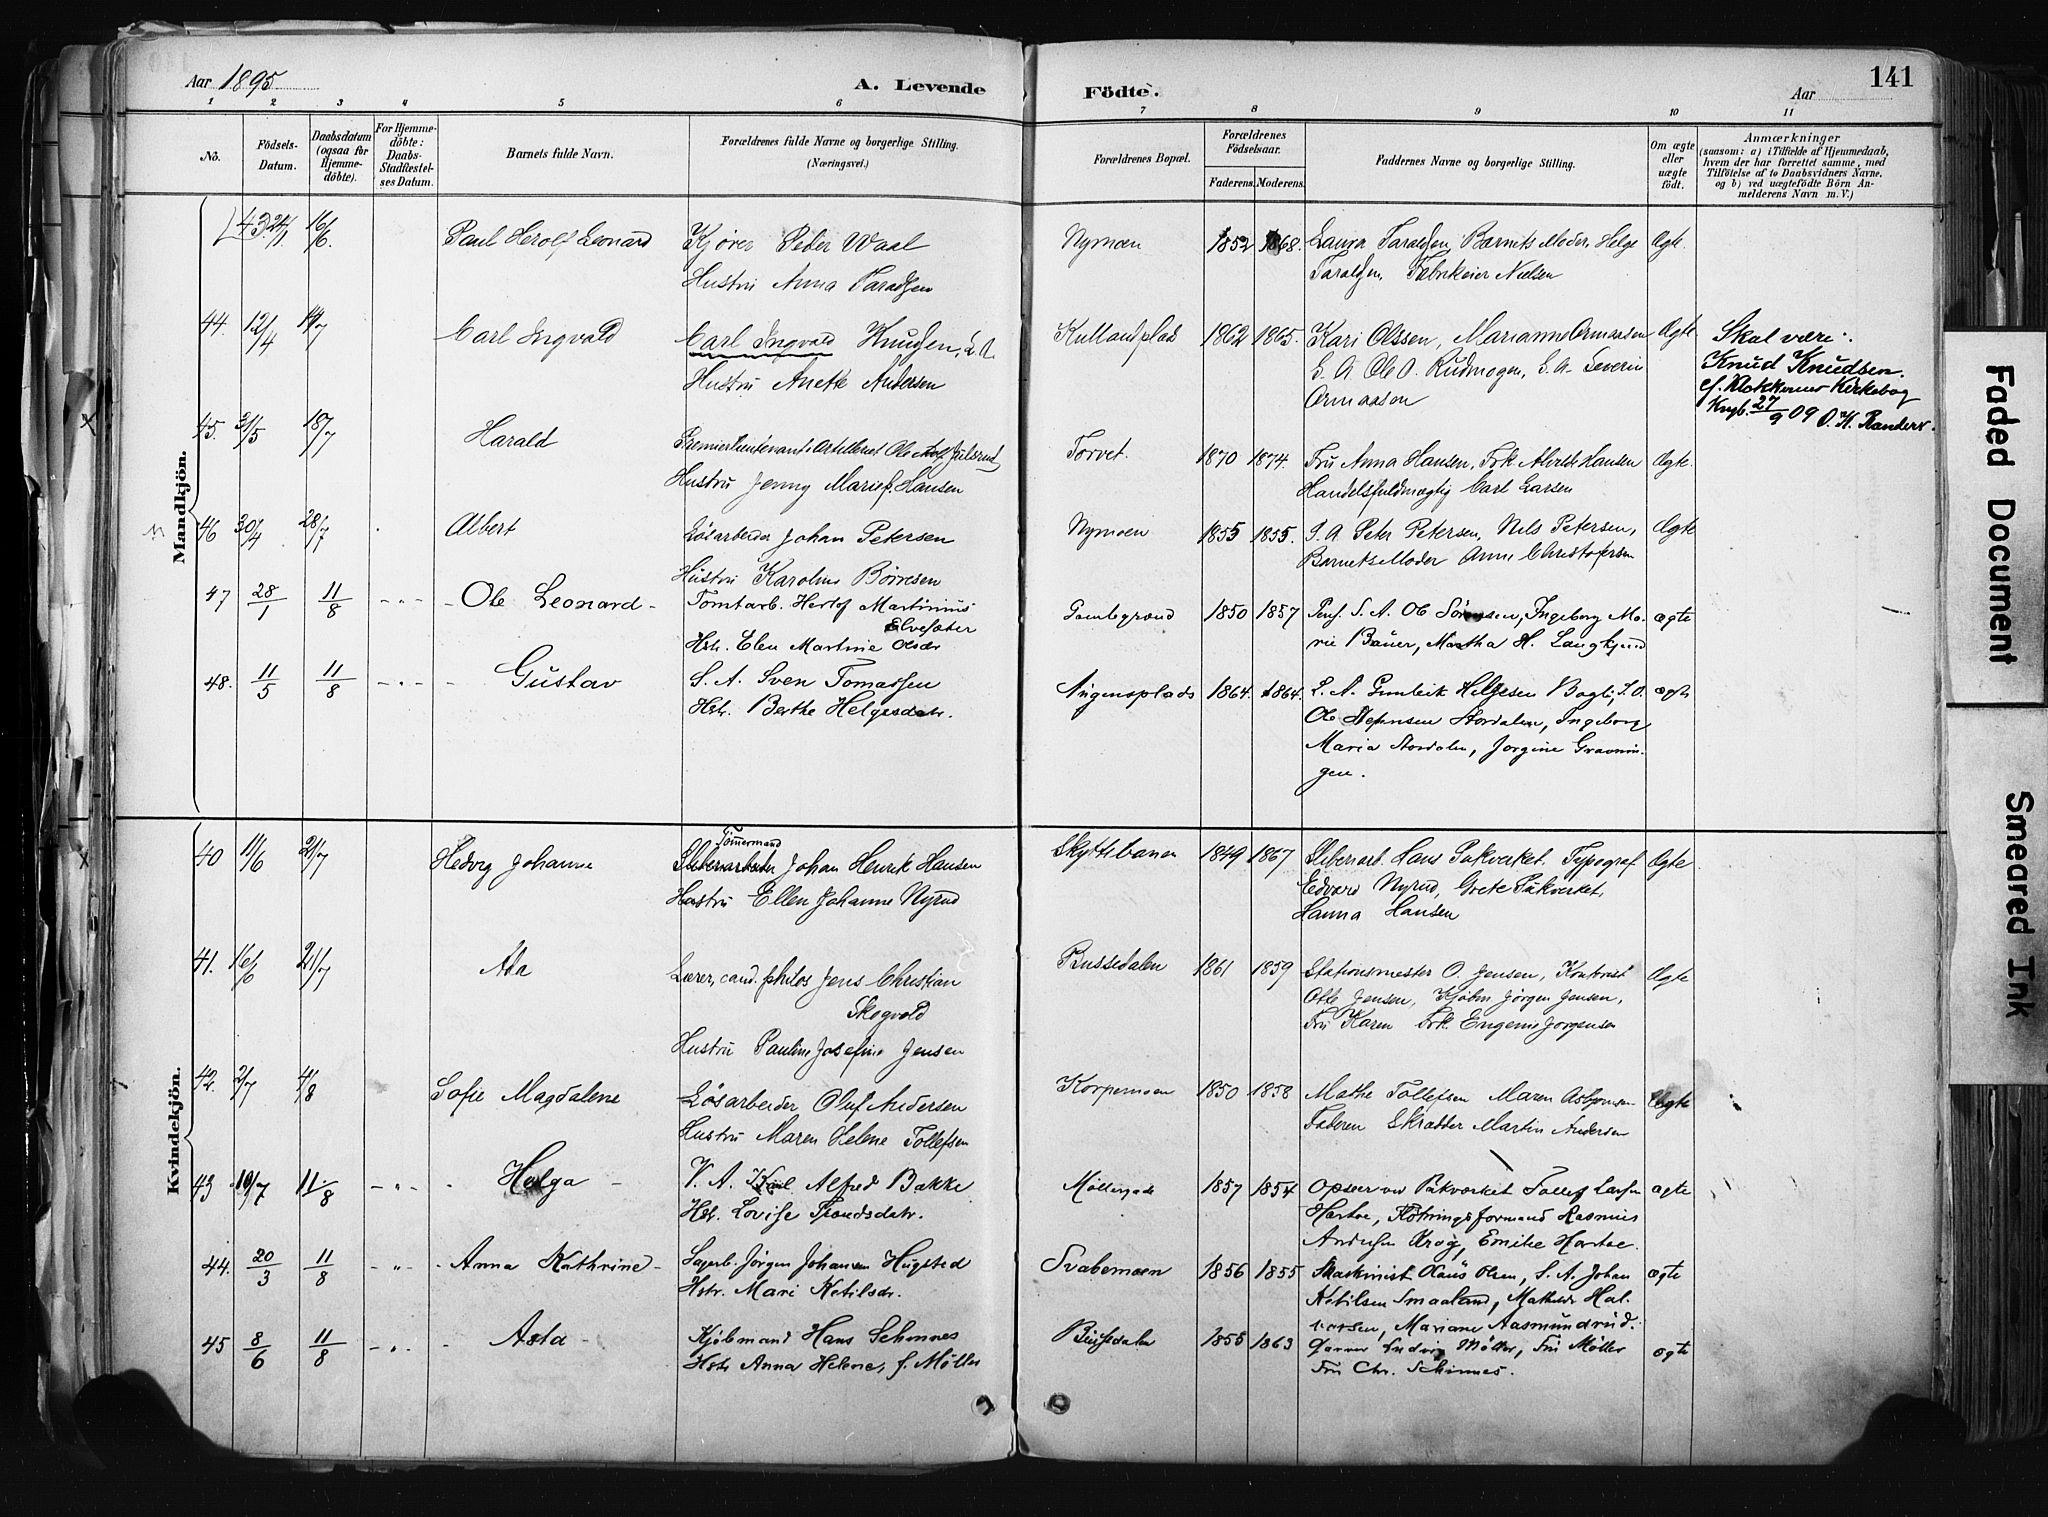 Aar 1895
A. Levende
Födte.
Aar
141
1 2 3 4 5 6 7 8 9 10 11
No.
Födsels-Datum.
Daabsdatum (ogsaa for Hjemmedöbte).
For Hjemmedöbte: Daabs-Stadfæstelses Datum.
Barnets fulde Navn.
Forældrenes fulde Navne og borgerlige Stilling. (Næringsvei.)
Forældrenes Bopæl.
Forældrenes Födselsaar.
Faderens. Moderens.
Faddernes Navne og borgerlige Stilling.
Om ægte eller uægte födt.
Anmærkninger
(saasom: a) i Tilfælde af Hjemmedaab, hvem der har forrettet samme, med Tilföielse af to Daabsvidners Navne. og b) ved uægtefödte Börn Anmelderens Navn m. V.)
Mandkjön.
43. 24/1 16/6. Paul Herolf Leonard Kjører Peder Waal Nymoen 1852 1868. Laura Taraldsen Barnets Moder, Helge Ægte.
Hustru Anna Taraldsen Taraldsen, Nielsen
44. 12/4 14/7 Carl Ingvald Carl Ingvald Knudsen, 1862 1865. Kari Olssen, Marianne Ormaasen Ægte Skal være:
Hustru Anette Andersen S. A Ole O. Rudmogen, S. A. Severin Knud Knudsen.
Ormaasen cf. Klokkerens Kirkebog
Kngb. 27/9 09 O. H. Randers.
45. 31/5 18/7 Harald Premierlieutenant i Artilleriet Ole Julsrud Torvet. 1870 1874. Fru Anna Hansen, Frk. Hansen Ægte.
Hustru Jenny Marie f. Hansen Handelsfuldmægtig Carl Larsen
46 30/4 28/7 Albert Løsarbeider Johan Petersen Nymoen 1855 1855. S. A. Peter Petersen, Nils Petersen, Ægte
Hustru Karoline Børresen Barnets Moder Anne Christofersen
47 28/1 11/8 Ole Leonard Tomtarb. Herlof Martinius Elvesæter 1850 1857 S. A. Ole Ingeborg Ma- ægte
Hstr. Elen Martine rie Bauer, Martha H.
48. 11/5 11/8 Gustav S. A. Sven Tomassen 1864. 1864. Helgesen ægte
Hstr. Berthe Helgesdatr. Ole Stordalen, Ingeborg
Maria Stordalen, Jorgine Gravnin-
gen.
Kvindekjön.
40 11/6 21/7 Hedvig Johanne Tømmermand Johan Henrik Hansen Skyttebanen 1849 1867 Sliberiarb. Hans Pakværket. Typograf Ægte
Hustru Ellen Johanne Nyrud Edvard Nyrud, Grete Pakværket,
Hanna Hansen
41. 16/6 21/7 Ada Lærer, cand. philos Jens Christian Bussedalen 1861 1859 Stationsmester O. Jensen, Ægte
Skogvold Otto Jensen, Kjøbm Jørgen Jensen,
Hustru Pauline Josefine Jensen Fru Karen Frk. Engenie Jorgensen
42. 2/7 4/8 Sofie Magdalene Løsarbeider Oluf Andersen Korpemoen 1850 1858 Mathe Tollefsen Maren Ægte
Hustru Maren Helene Tollefsen Faderen Skrædder Martin Andersen
43 10/7 11/8 Helga V. A. Alfred Bakke Møllergade 1857 1854 Opseer ved Pakværket Tollef Larsen ægte
Hst. Lovise Trondsdatr. Hartoe, Fløtningsformand Rasmus
Krog, Emilie Hartoe.
44. 20/3 11/8 Anna Kathrine Sagarb. Jørgen Johansen Hugsted Svabemoen 1856 1855 Maskinist Olaus Olsen, S. A. Johan ægte
Hstr. Mari Ketilsdr. Ketilsen Smaaland, Mathilde Hal-
vorsen, Mariane Aasmundrud.
45 8/6 11/8 Asta Kjøbmand Hans Schinnes Bussedalen 1855 1863 Garver Ludvig Møller, Fru Møller ægte
Hstr Anna Helene, f. Møller Fru Chr. Schinnes.
Faded Document
Smeared Ink